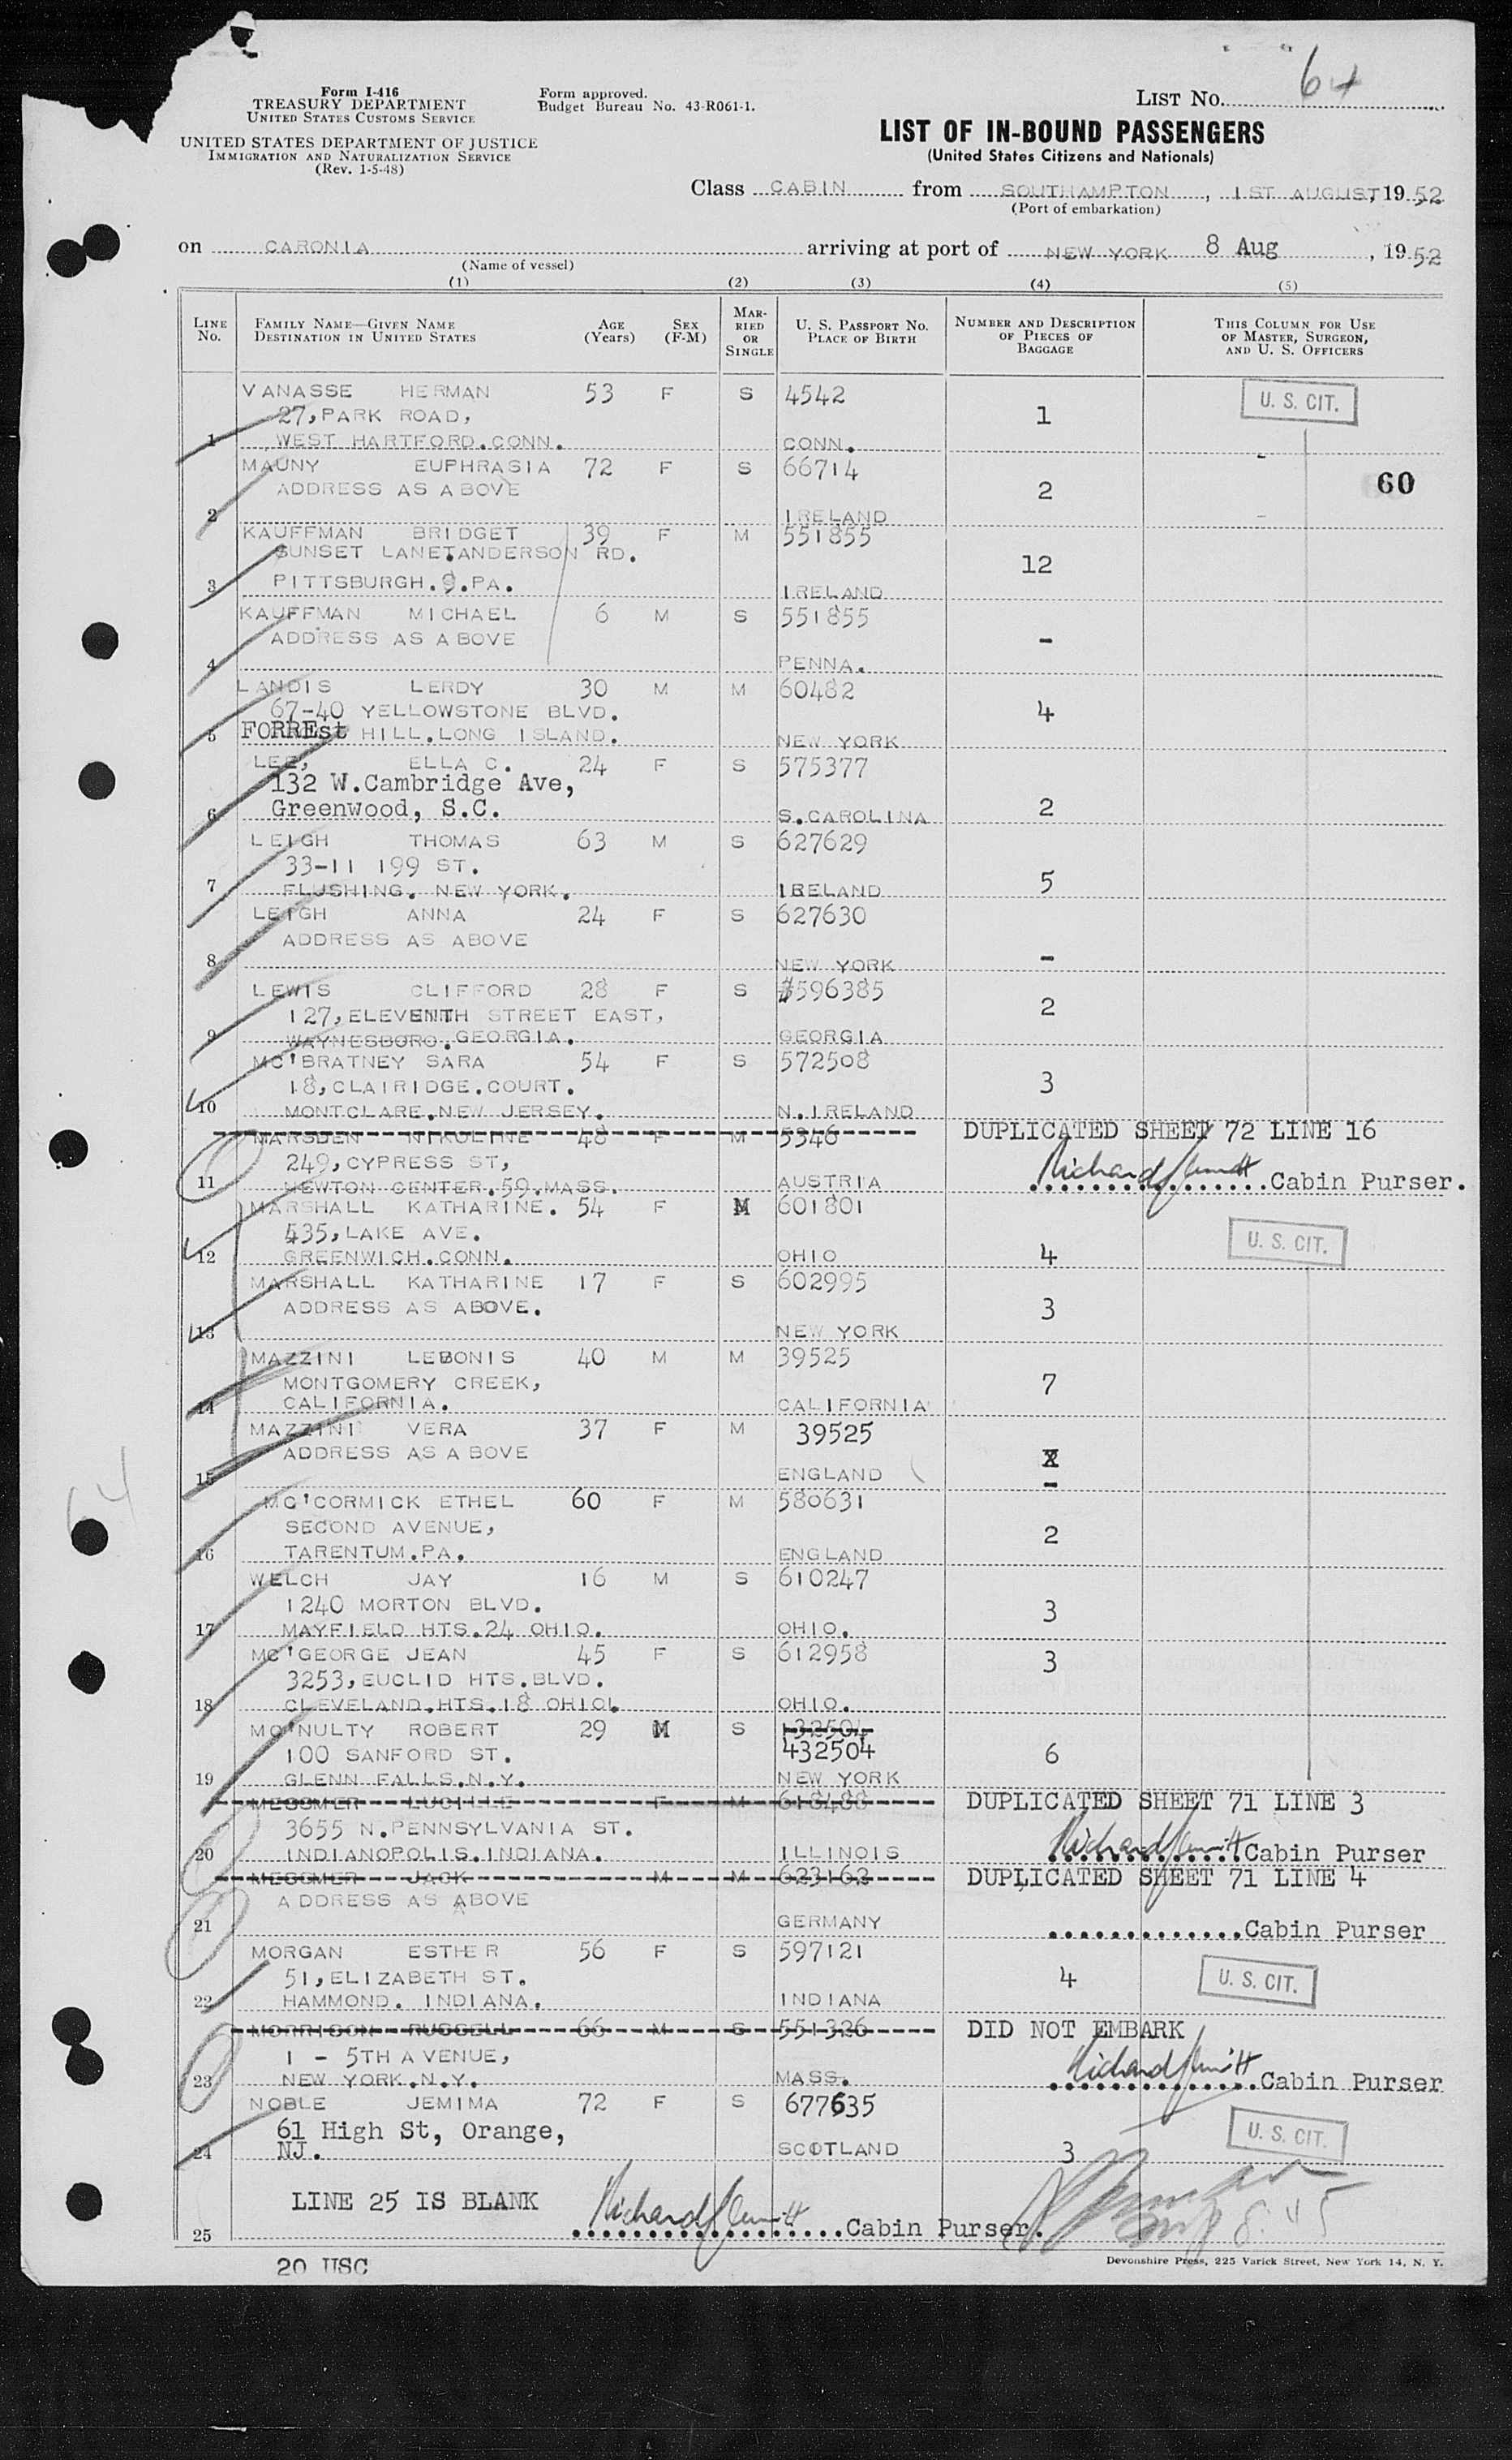 Form I-416
TREASURY DEPARTMENT
UNITED STATES CUSTOMS SERVICE
UNITED STATES DEPARTMENT OF JUSTICE
IMMIGRATION AND NATURALIZATION SERVICE
(Rev. 1-5-48)
Form approved.
Budget Bureau No. 43-R061-1.
LIST NO. 64
LIST OF IN-BOUND PASSENGERS
(United States Citizens and Nationals)
Class CABIN from SOUTHAMPTON, 1ST AUGUST, 1952
(Port of embarkation)
on CARONIA arriving at port of NEW YORK 8 Aug, 1952
(Name of vessel)
(1) (2) (3) (4) (5)
LINE No. FAMILY NAME—GIVEN NAME DESTINATION IN UNITED STATES AGE (Years) SEX (F-M) MARRIED OR SINGLE U. S. PASSPORT NO. PLACE OF BIRTH NUMBER AND DESCRIPTION OF PIECES OF BAGGAGE THIS COLUMN FOR USE OF MASTER, SURGEON, AND U. S. OFFICERS
VANASSE HERMAN 53 F S 4542 U. S. CIT.
27, PARK ROAD, 1
1 WEST HARTFORD. CONN. CONN.
MAUNY EUPHRASIA 72 F S 66714 60
ADDRESS AS ABOVE 2
2 IRELAND
KAUFFMAN BRIDGET 39 F M 551855
SUNSET LANE.ANDERSON RD. 12
3 PITTSBURGH.9.PA. IRELAND
KAUFFMAN MICHAEL 6 M S 551855
ADDRESS AS ABOVE -
4 PENNA.
LANDIS LERDY 30 M M 60482
67-40 YELLOWSTONE BLVD. 4
5 FORREst HILL. LONG ISLAND. NEW YORK
LEE, ELLA C. 24 F S 575377
132 W.Cambridge Ave,
6 Greenwood, S.C. S.CAROLINA 2
LEIGH THOMAS 63 M S 627629
33-11 199 ST.
7 FLUSHING. NEW YORK. IRELAND 5
LEIGH ANNA 24 F S 627630
ADDRESS AS ABOVE
8 NEW YORK -
LEWIS CLIFFORD 28 F S 596385
127, ELEVENTH STREET EAST, 2
9 WAYNESBORO. GEORGIA. GEORGIA
MC'BRATNEY SARA 54 F S 572508
18, CLAIRIDGE.COURT. 3
10 MONTCLARE. NEW JERSEY. N. IRELAND
MARSDEN NIKOLINE 48 F M 5346 DUPLICATED SHEET 72 LINE 16
249, CYPRESS ST,
11 NEWTON CENTER.59.MASS. AUSTRIA Cabin Purser.
MARSHALL KATHARINE. 54 F M 601801
435, LAKE AVE. U. S. CIT.
12 GREENWICH. CONN. OHIO 4
MARSHALL KATHARINE 17 F S 602995
ADDRESS AS ABOVE. 3
13 NEW YORK
MAZZINI LEBONIS 40 M M 39525
MONTGOMERY CREEK, 7
14 CALIFORNIA. CALIFORNIA
MAZZINI VERA 37 F M 39525
ADDRESS AS ABOVE
15 ENGLAND -
MC'CORMICK ETHEL 60 F M 580631
SECOND AVENUE, 2
16 TARENTUM. PA. ENGLAND
WELCH JAY 16 M S 610247
1240 MORTON BLVD. 3
17 MAYFIELD HTS. 24 OHIO. OHIO.
MC'GEORGE JEAN 45 F S 612958 3
3253, EUCLID HTS. BLVD.
18 CLEVELAND. HTS. 18 OHIO. OHIO.
MC'NULTY ROBERT 29 M S 132504
100 SANFORD ST. 432504 6
19 GLENN FALLS. N.Y. NEW YORK
MESSMER LUCILLE F M 618488 DUPLICATED SHEET 71 LINE 3
3655 N. PENNSYLVANIA ST.
20 INDIANOPOLIS. INDIANA. ILLINOIS Cabin Purser
MESSMER JACK M M 623162 DUPLICATED SHEET 71 LINE 4
ADDRESS AS ABOVE
21 GERMANY Cabin Purser
MORGAN ESTHER 56 F S 597121
51, ELIZABETH ST. 4 U. S. CIT.
22 HAMMOND. INDIANA. INDIANA
MORRISON RUSSELL 66 M S 551326 DID NOT EMBARK
1 - 5TH AVENUE,
23 NEW YORK. N.Y. MASS. Cabin Purser
NOBLE JEMIMA 72 F S 677635
61 High St, Orange, U. S. CIT.
24 NJ. SCOTLAND 3
LINE 25 IS BLANK
25 Cabin Purser.
20 USC
Devonshire Press, 225 Varick Street, New York 14, N. Y.
64